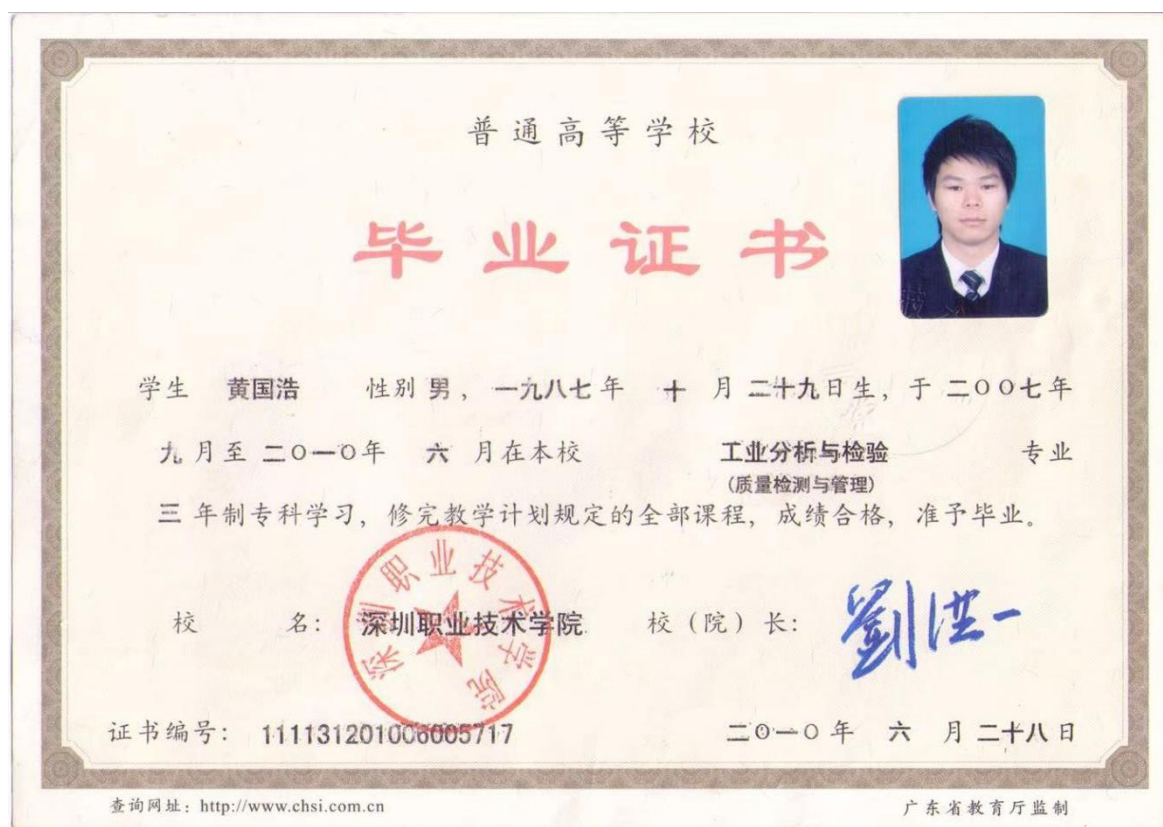 普通高等学校
毕业证书
学生 黄国浩 性别 男，一九八七年 十 月 二十九日生，于 二〇〇七年
九 月至 二〇一〇年 六 月在本校 工业分析与检验 专业
(质量检测与管理)
三 年制专科学习，修完教学计划规定的全部课程，成绩合格，准予毕业。
校 名： 深圳职业技术学院 校（院）长： 劉洪一
深圳职业技术学院
证书编号： 111131201006005717 二〇一〇年 六 月 二十八日
查询网址：http://www.chsi.com.cn 广东省教育厅监制